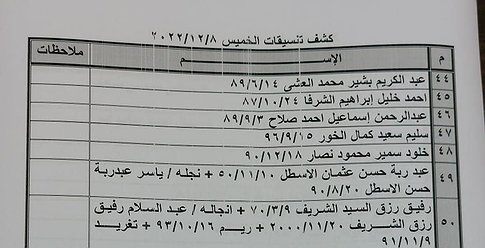 كشف تنسيقات الخميس ٢٠٢٢/١٢/٨
م الإســـــم ملاحظات
٤٤ عبد الكريم بشير محمد العشي ٨٩/٦/١٤
٤٥ احمد خليل إبراهيم الشرفا ٨٧/١٠/٢٤
٤٦ عبدالرحمن إسماعيل احمد صلاح ٨٩/٩/٣
٤٧ سليم سعيد كمال الخور ٩٦/٩/١٥
٤٨ خلود سمير محمود نصار ٩٠/١٢/١٨
٤٩ عبد ربة حسن عثمان الاسطل ٥٠/١١/١٠ + نجله / ياسر عبدربة
حسن الاسطل ٩٠/٨/٢٠
٥٠ رفيق رزق السيد الشريف ٧٠/٣/٩ + انجاله / عبد السلام رفيق
رزق الشريف ٢٠٠٠/١١/٢٠ + ريم ٩٣/١٠/١٦ + تغريد
٩١/١١/٩